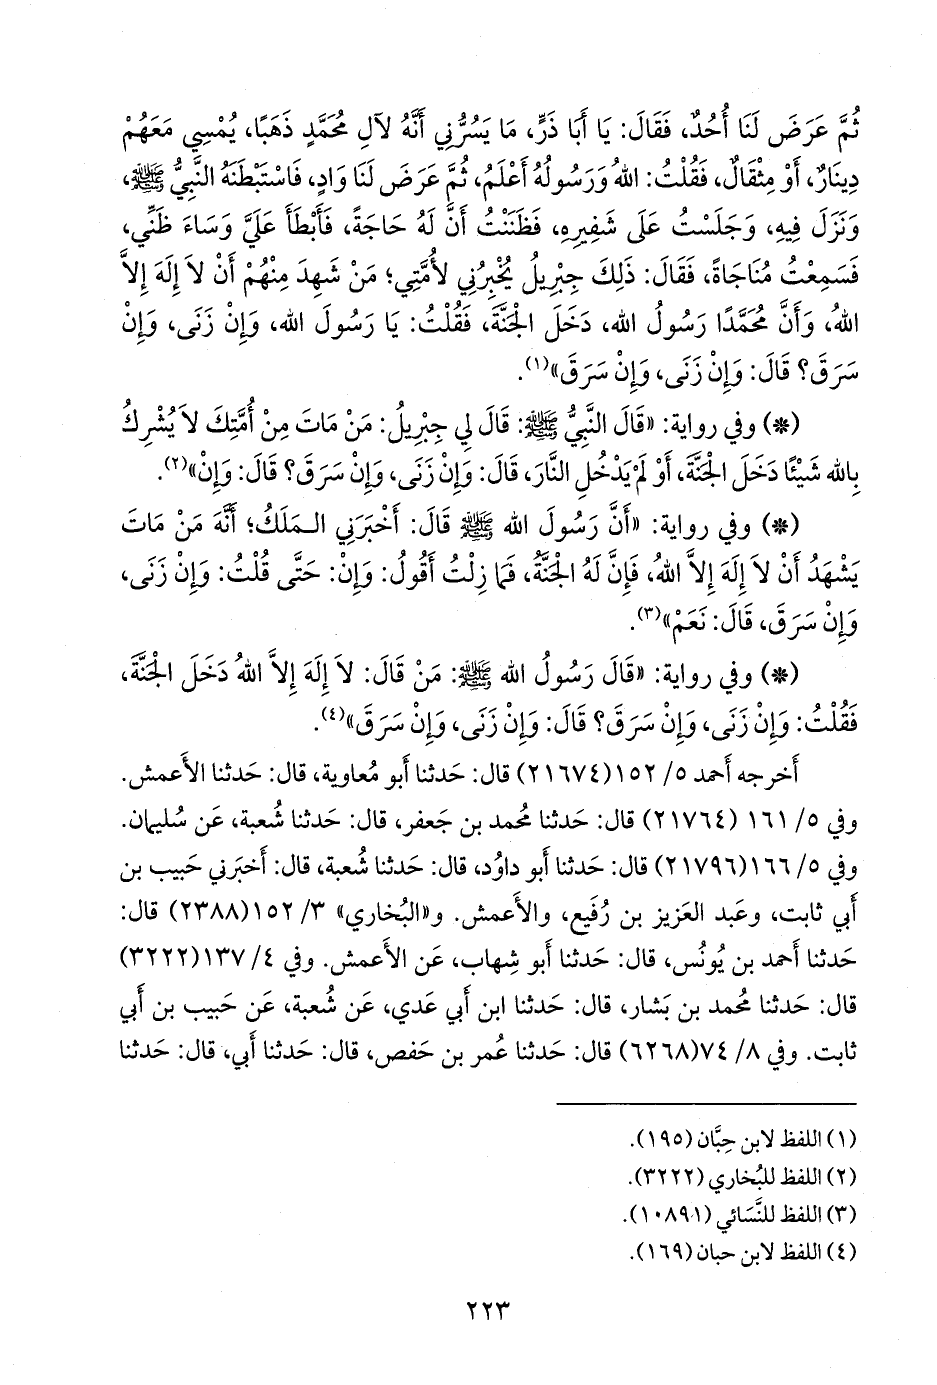 ثُمَّ عَرَضَ لَنَا أُحُدٌ، فَقَالَ: يَا أَبَا ذَرٍّ، مَا يَسُرُّنِي أَنَّهُ لآلِ مُحَمَّدٍ ذَهَبًا، يُمْسِي مَعَهُمْ
دِينَارٌ، أَوْ مِثْقَالٌ، فَقُلْتُ: اللهُ وَرَسُولُهُ أَعْلَمُ، ثُمَّ عَرَضَ لَنَا وَادٍ، فَاسْتَبْطَنَهُ النَّبِيُّ ﷺ،
وَنَزَلَ فِيهِ، وَجَلَسْتُ عَلَى شَفِيرِهِ، فَظَنَنْتُ أَنَّ لَهُ حَاجَةً، فَأَبْطَأَ عَلَيَّ وَسَاءَ ظَنِّي،
فَسَمِعْتُ مُنَاجَاةً، فَقَالَ: ذَلِكَ جِبْرِيلُ يُخْبِرُنِي لأُمَّتِي؛ مَنْ شَهِدَ مِنْهُمْ أَنْ لاَ إِلَهَ إِلاَّ
اللهُ، وَأَنَّ مُحَمَّدًا رَسُولُ الله، دَخَلَ الْجَنَّةَ، فَقُلْتُ: يَا رَسُولَ الله، وَإِنْ زَنَى، وَإِنْ
سَرَقَ؟ قَالَ: وَإِنْ زَنَى، وَإِنْ سَرَقَ»(١).
(*) وفي رواية: «قَالَ النَّبِيُّ ﷺ: قَالَ لِي جِبْرِيلُ: مَنْ مَاتَ مِنْ أُمَّتِكَ لاَ يُشْرِكُ
بِالله شَيْئًا دَخَلَ الْجَنَّةَ، أَوْ لَمْ يَدْخُلِ النَّارَ، قَالَ: وَإِنْ زَنَى، وَإِنْ سَرَقَ؟ قَالَ: وَإِنْ»(٢).
(*) وفي رواية: «أَنَّ رَسُولَ الله ﷺ قَالَ: أَخْبَرَنِي الـمَلَكُ؛ أَنَّهُ مَنْ مَاتَ
يَشْهَدُ أَنْ لاَ إِلَهَ إِلاَّ اللهُ، فَإِنَّ لَهُ الْجَنَّةُ، فَمَا زِلْتُ أَقُولُ: وَإِنْ: حَتَّى قُلْتُ: وَإِنْ زَنَى،
وَإِنْ سَرَقَ، قَالَ: نَعَمْ»(٣).
(*) وفي رواية: «قَالَ رَسُولُ الله ﷺ: مَنْ قَالَ: لاَ إِلَهَ إِلاَّ اللهُ دَخَلَ الْجَنَّةَ،
فَقُلْتُ: وَإِنْ زَنَى، وَإِنْ سَرَقَ؟ قَالَ: وَإِنْ زَنَى، وَإِنْ سَرَقَ»(٤).
أخرجه أحمد ٥/ ١٥٢ (٢١٦٧٤) قال: حَدثنا أَبو مُعاوية، قال: حَدثنا الأَعمش.
وفي ٥/ ١٦١ (٢١٧٦٤) قال: حَدثنا محُمد بن جَعفر، قال: حَدثنا شُعبة، عَن سُليمان.
وفي ٥/ ١٦٦ (٢١٧٩٦) قال: حَدثنا أَبو داوُد، قال: حَدثنا شُعبة، قال: أَخبَرني حَبيب بن
أَبي ثابت، وعَبد العَزيز بن رُفَيع، والأَعمش. و«البُخاري» ٣/ ١٥٢ (٢٣٨٨) قال:
حَدثنا أَحمد بن يُونُس، قال: حَدثنا أَبو شِهاب، عَن الأَعمش. وفي ٤/ ١٣٧ (٣٢٢٢)
قال: حَدثنا محُمد بن بَشار، قال: حَدثنا ابن أَبي عَدي، عَن شُعبة، عَن حَبيب بن أَبي
ثابت. وفي ٨/ ٧٤ (٦٢٦٨) قال: حَدثنا عُمر بن حَفص، قال: حَدثنا أَبي، قال: حَدثنا
(١) اللفظ لابن حِبَّان (١٩٥).
(٢) اللفظ للبُخاري (٣٢٢٢).
(٣) اللفظ للنَّسَائي (١٠٨٩١).
(٤) اللفظ لابن حبان (١٦٩).
٢٢٣